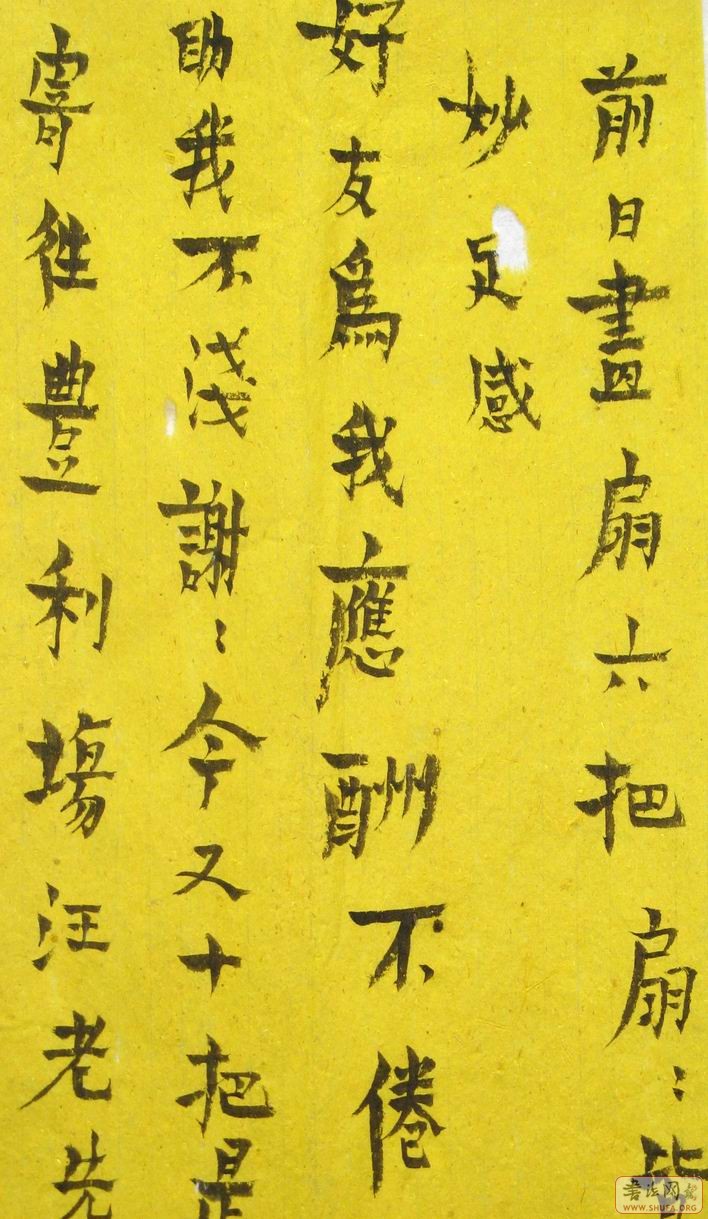 前日畫扇六把扇〻皆
妙足感
好友為我應酬不倦
助我不淺謝〻今又十把是
寄往豐利場汪老先
書法网
WWW.SHUFA.ORG